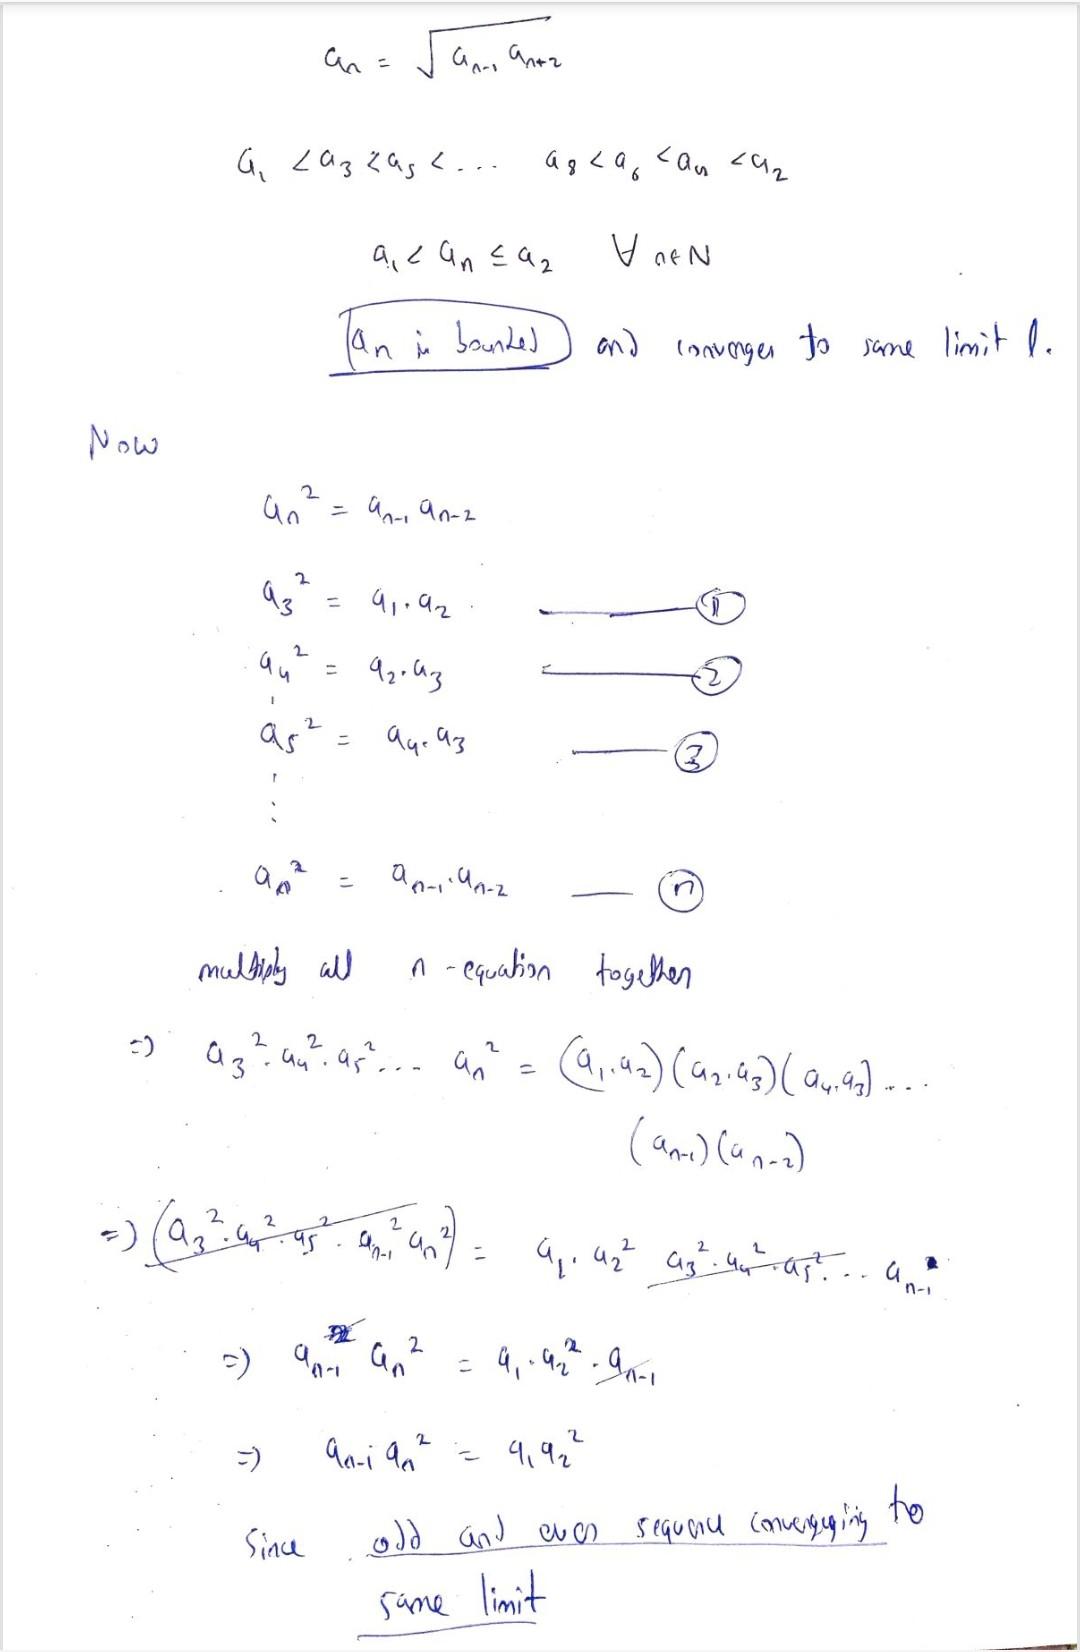 aₙ = √(aₙ₋₁ aₙ₊₂)
a₁ < a₃ < a₅ < ... a₈ < a₆ < a₄ < a₂
a₁ < aₙ ≤ a₂ ∀ n∈N
aₙ is bounded and converges to same limit l.
Now
aₙ² = aₙ₋₁ aₙ₋₂
a₃² = a₁.a₂ ——— ①
a₄² = a₂.a₃ ——— ②
a₅² = a₄.a₃ ——— ③
⋮
aₙ² = aₙ₋₁.aₙ₋₂ — ⓝ
multiply all n-equation together
⇒ a₃².a₄².a₅²... aₙ² = (a₁.a₂)(a₂.a₃)(a₄.a₃)...
(aₙ₋₁)(aₙ₋₂)
⇒ (a₃².a₄².a₅².aₙ₋₁² aₙ²) = a₁.a₂² a₃².a₄².a₅²... aₙ₋₁
⇒ aₙ₋₁² aₙ² = a₁.a₂².aₙ₋₁
⇒ aₙ₋₁ aₙ² = a₁a₂²
Since odd and even sequence convergeging to
same limit